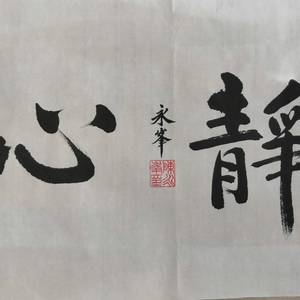 靜
永峯
心